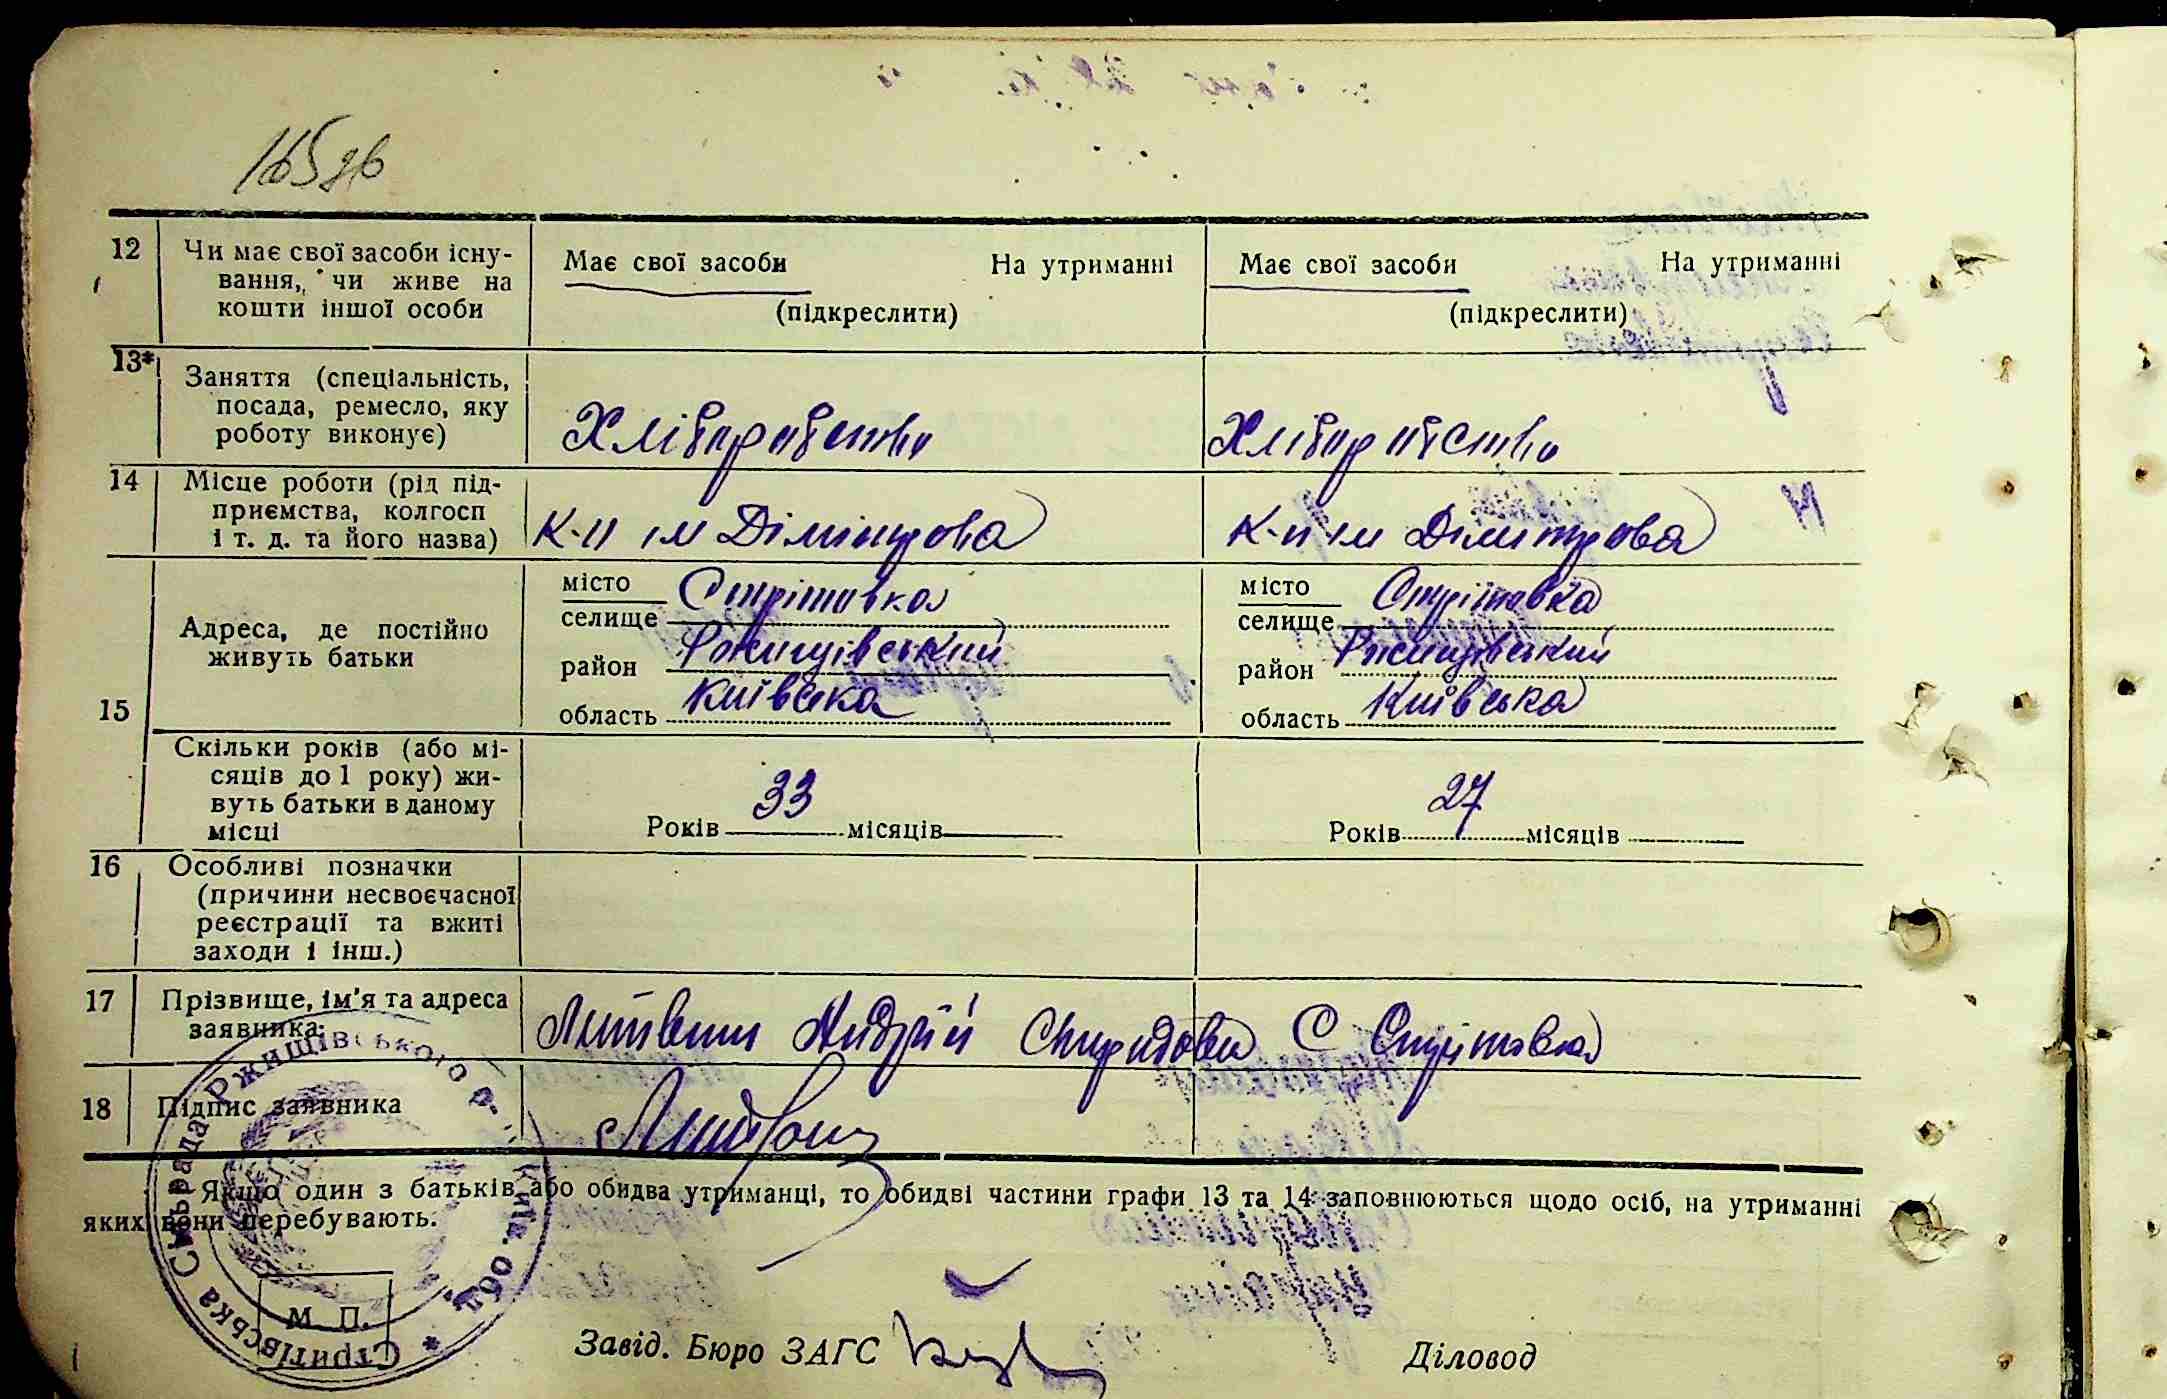 165 зв
12 Чи має свої засоби існу-
вання, чи живе на
кошти іншої особи
Має свої засоби На утриманні
(підкреслити)
Має свої засоби На утриманні
(підкреслити)
13* Заняття (спеціальність,
посада, ремесло, яку
роботу виконує)
Хліборобство
Хліборобство
14 Місце роботи (рід під-
приємства, колгосп
і т. д. та його назва)
К-п ім Дімітрова
К-п ім Дімитрова
15 Адреса, де постійно
живуть батьки
місто
селище Стрітовка
район Ржищівський
область Київська
місто
селище Стрітовка
район Ржищівський
область Київська
Скільки років (або мі-
сяців до 1 року) жи-
вуть батьки в даному
місці
Років 33 місяців
Років 27 місяців
16 Особливі позначки
(причини несвоєчасної
реєстрації та вжиті
заходи і інш.)
17 Прізвище, ім'я та адреса
заявника:
Литвин Андрій С Стрітовка
18 Підпис заявника
Якщо один з батьків або обидва утриманці, то обидві частини графи 13 та 14 заповнюються щодо осіб, на утриманні
яких вони перебувають.
Стритівська Сільрада Ржищівського р-н Київ. обл. *
М. П.
Завід. Бюро ЗАГС
Діловод